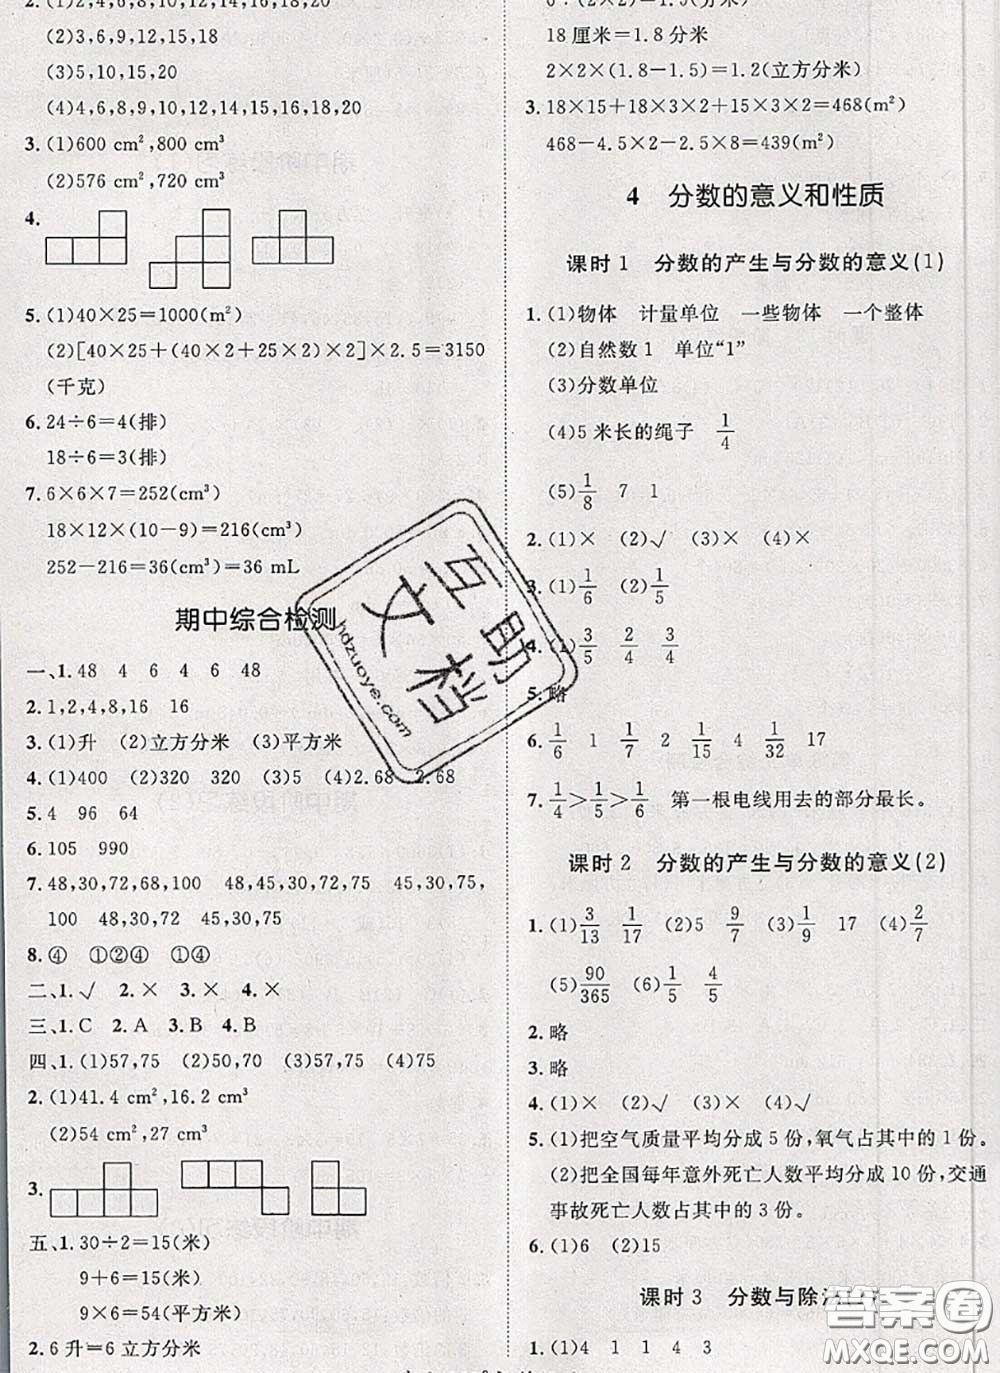 2. (1)2,4,6,8,9,10,12,14,15,16,18,20
(2)3,6,9,12,15,18
(3)5,10,15,20
(4)4,6,8,9,10,12,14,15,16,18,20
3. (1)600 cm²,800 cm³
(2)576 cm²,720 cm³
4.
5. (1)40×25=1000(m²)
(2)[40×25+(40×2+25×2)×2]×2.5=3150
(千克)
6. 24÷6=4(排)
18÷6=3(排)
7. 6×6×7=252(cm³)
18×12×(10-9)=216(cm³)
252-216=36(cm³)=36 mL
期中综合检测
一、1. 48 4 6 4 6 48
2. 1,2,4,8,16 16
3. (1)升 (2)立方分米 (3)平方米
4. (1)400 (2)320 320 (3)5 (4)2.68 2.68
5. 4 96 64
6. 105 990
7. 48,30,72,68,100 48,60,72,30 45,30,75,
100 48,30,72 45,30,75
8. ④ ①②④ ①④
二、1. √ 2. × 3. × 4. ×
三、1. C 2. A 3. B 4. B
四、1. (1)57,75 (2)50,70 (3)57,75 (4)75
2. (1)41.4 cm²,16.2 cm³
(2)54 cm²,27 cm³
3.
五、1. 30÷2=15(米)
9+6=15(米)
9×6=54(平方米)
2. 6升=6立方分米
6÷(2×2)=1.5(分米)
18厘米=1.8分米
2×2×(1.8-1.5)=1.2(立方分米)
3. 18×15+18×3×2+15×3×2=468(m²)
468-4.5×2-2.5×8=439(m²)
4 分数的意义和性质
课时1 分数的产生与分数的意义(1)
1. (1)物体 计量单位 一些物体 一个整体
(2)自然数1 单位“1”
(3)分数单位
(4)5米长的绳子 1/4
(5)1/8 7 1
2. (1)× (2)√ (3)× (4)×
3. (1)1/6 (2)1/5
4. (1)3/5 (2)4/5
5. 略
6. 1/6 1 1/7 2 1/15 4 1/32 17
7. 1/4>1/5>1/6 第一根电线用去的部分最长。
课时2 分数的产生与分数的意义(2)
1. (1)3/13 1/17 (2)5 9/7 (3)1/9 17 (4)2/7
(5)90/365 (6)1/5 4/5
2. 略
3. 略
4. (1)× (2)√ (3)× (4)√
5. (1)把空气质量平均分成5份,氧气占其中的1份。
(2)把全国每年意外死亡人数平均分成10份,交通
事故死亡人数占其中的3份。
6. (1)6 (2)15
课时3 分数与除法
1. (1)4 1 1 4 3
互助文档
hdzuoye.com
答案圈
MXQE.COM